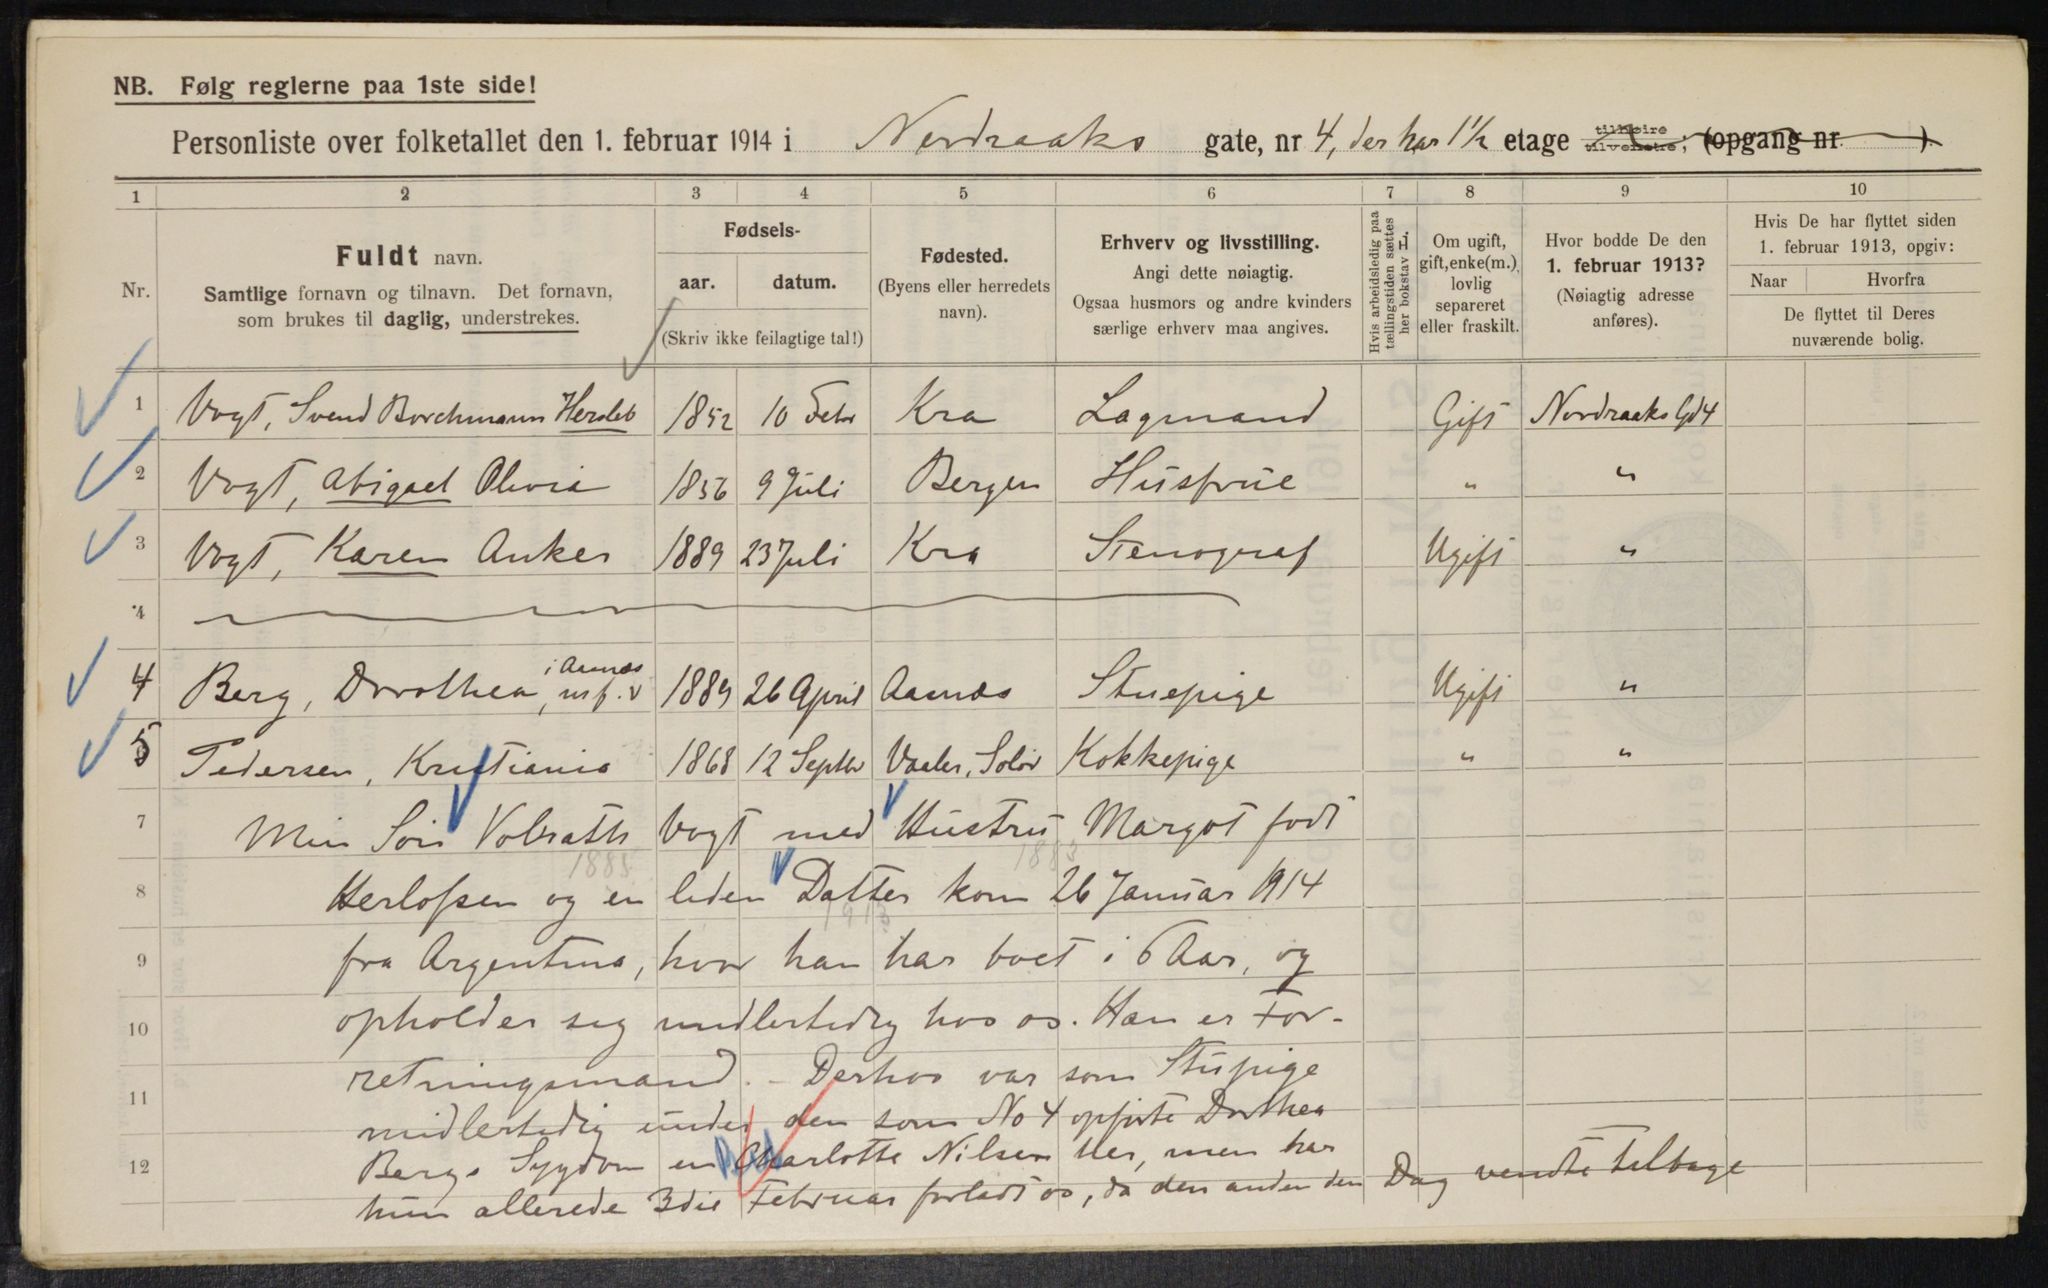 NB. Følg reglerne paa 1ste side!
Personliste over folketallet den 1. februar 1914 i Nordraaks gate, nr 4, der har 1½ etage tilhøire tilvenstre, (opgang nr ).
1 2 3 4 5 6 7 8 9 10
Nr.
Fuldt navn.
Samtlige fornavn og tilnavn. Det fornavn,
som brukes til daglig, understrekes.
Fødsels-
aar. datum.
(Skriv ikke feilagtige tal!)
Fødested.
(Byens eller herredets
navn).
Erhverv og livsstilling.
Angi dette nøiagtig.
Ogsaa husmors og andre kvinders
særlige erhverv maa angives.
Hvis arbeidsledig paa
tællingstiden sættes
her bokstav L.
Om ugift,
gift, enke(m.),
lovlig
separeret
eller fraskilt.
Hvor bodde De den
1. februar 1913?
(Nøiagtig adresse
anføres).
Hvis De har flyttet siden
1. februar 1913, opgiv:
Naar Hvorfra
De flyttet til Deres
nuværende bolig.
1 Vogt, Svend Borchmann Hersleb 1852 10 Febr Kra Lagmand Gift Nordraaks Gd 4
2 Vogt, Abigael Olivia 1856 9 Juli Bergen Husfrue " "
3 Vogt, Karen Anker 1889 23 Juli Kra Stenograf Ugift "
4
4 Berg, Dorothea, i Aamas 1889 26 April Aamas Stuepige Ugift "
5 Pedersen, Kristiania 1868 12 Septbr Vaaler, Solør Kokkepige " "
7 Min Søn Volrath Vogt med Hustru Margot født
1885 1883
8 Herlofsen og en liden Datter kom 26 Januar 1914
1913
9 fra Argentina, hvor han har boet i 6 Aar, og
10 opholder sig midlertidig hos os. Han er For-
11 retningsmand. - Derhos var som Stupige
midlertidig under den som No 4 opførte Dorthea
12 Bergs Sygdom en Charlotte Nilsen her, men har
hun allerede 3die Februar forladt os, da den anden den Dag vendte tilbage